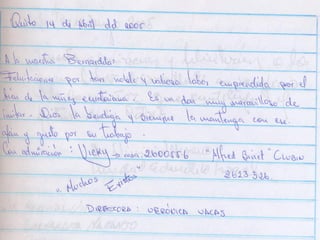 Quito 14 de Abril del 2005
A la maestra Bernardita:
Felicitaciones por tan noble y valiosa labor emprendida por el
bien de la niñez ecuatoriana. Es un don muy maravilloso de
imitar. Dios la bendiga y siempre la mantenga con ese
afán y gusto por su trabajo.
Con admiración: Vicky 2600556 "Alfred Binet"
2623326
"Muchos Exitos"
DIRECTORA: VERÓNICA VACAS